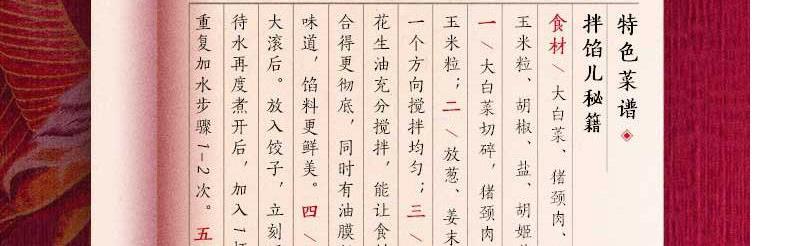 特色菜谱
拌馅儿秘籍
食材/大白菜、猪颈肉、
玉米粒、胡椒、盐、胡姬
一/大白菜切碎，猪颈肉
玉米粒；二/放葱、姜末
一个方向搅拌均匀；三/
花生油充分搅拌，能让食材
合得更彻底，同时有油膜
味道，馅料更鲜美。四/
大滚后。放入饺子，立刻
待水再度煮开后，加入1
重复加水步骤1-2次。五